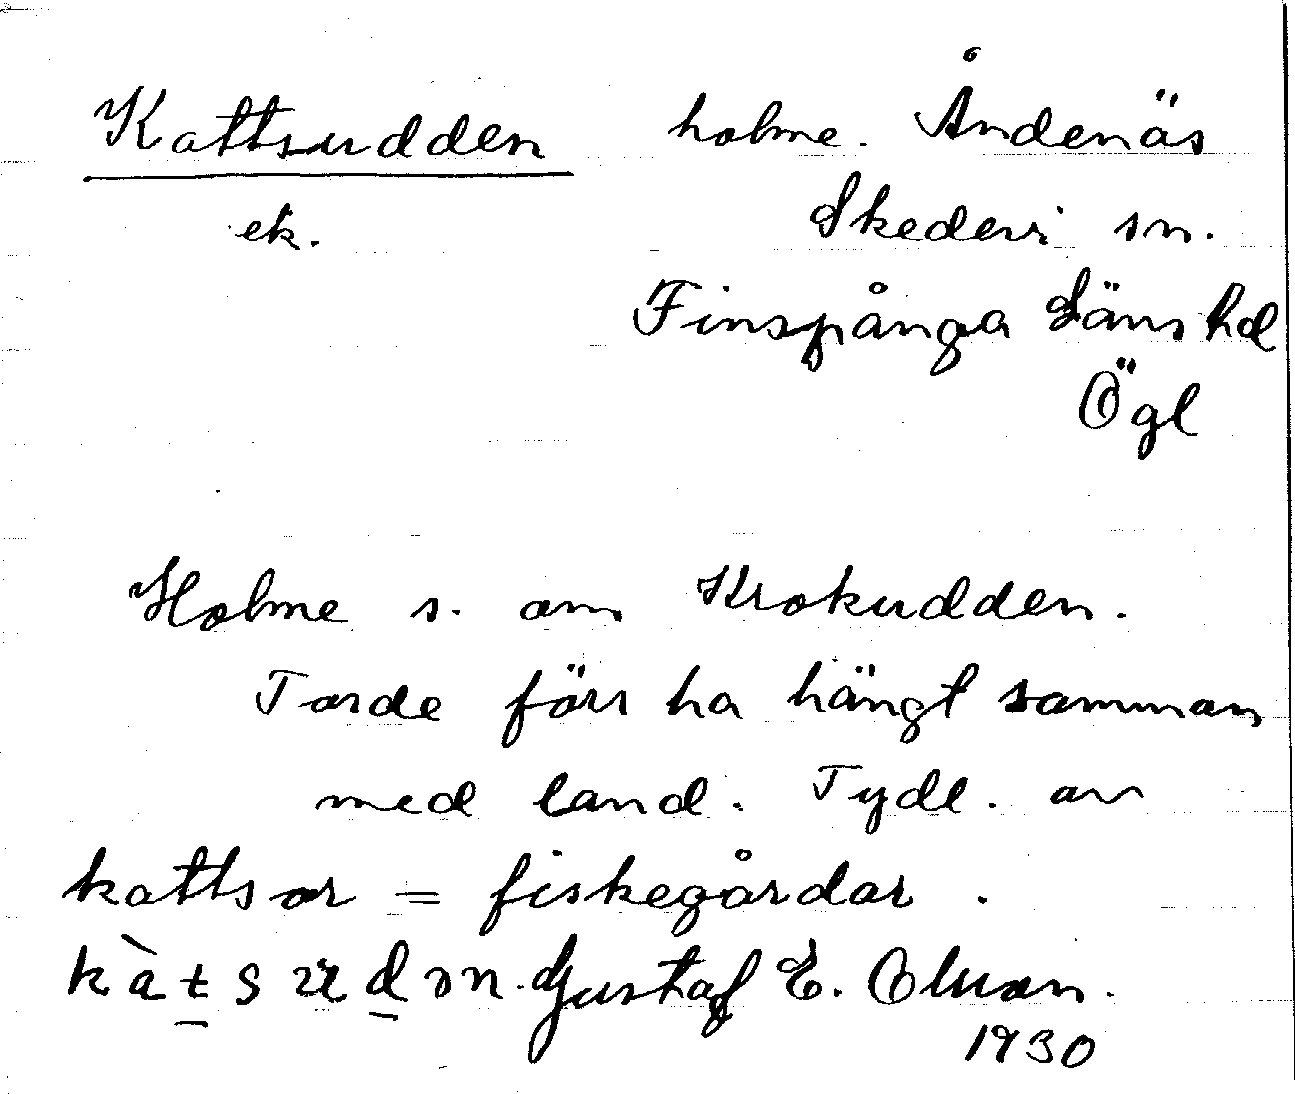 Kattsudden holme. Åndenäs
ek. Skedevi sn.
Finspånga Läns hd
Ögl
Holme s. om Krokudden.
Torde förr ha hängt samman
med land. Tydl. av
kattsor = fiskegårdar.
kàtsudən. Gustaf E. Olsson.
1930